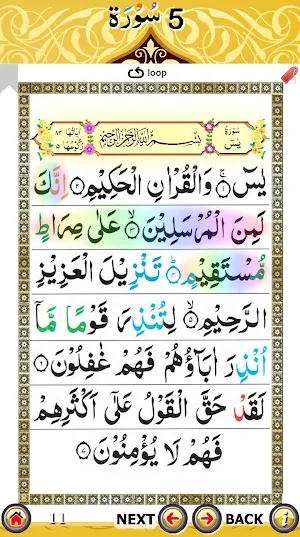 5 سُوْرَة
loop
سُوْرَةُ
يٰسٓ
بِسْمِ اللّٰهِ الرَّحْمٰنِ الرَّحِيْمِ
اٰيَاتُهَا ٨٣
رُكُوْعُهَا ٥
يٰسٓ ۝١ وَالْقُرْاٰنِ الْحَكِيْمِ ۝٢ اِنَّكَ
لَمِنَ الْمُرْسَلِيْنَ ۝٣ عَلٰى صِرَاطٍ
مُّسْتَقِيْمٍ ۝٤ تَنْزِيْلَ الْعَزِيْزِ
الرَّحِيْمِ ۝٥ لِتُنْذِرَ قَوْمًا مَّاۤ
اُنْذِرَ اٰبَآؤُهُمْ فَهُمْ غٰفِلُوْنَ ۝٦
لَقَدْ حَقَّ الْقَوْلُ عَلٰۤى اَكْثَرِهِمْ
فَهُمْ لَا يُؤْمِنُوْنَ ۝٧
11 NEXT BACK i